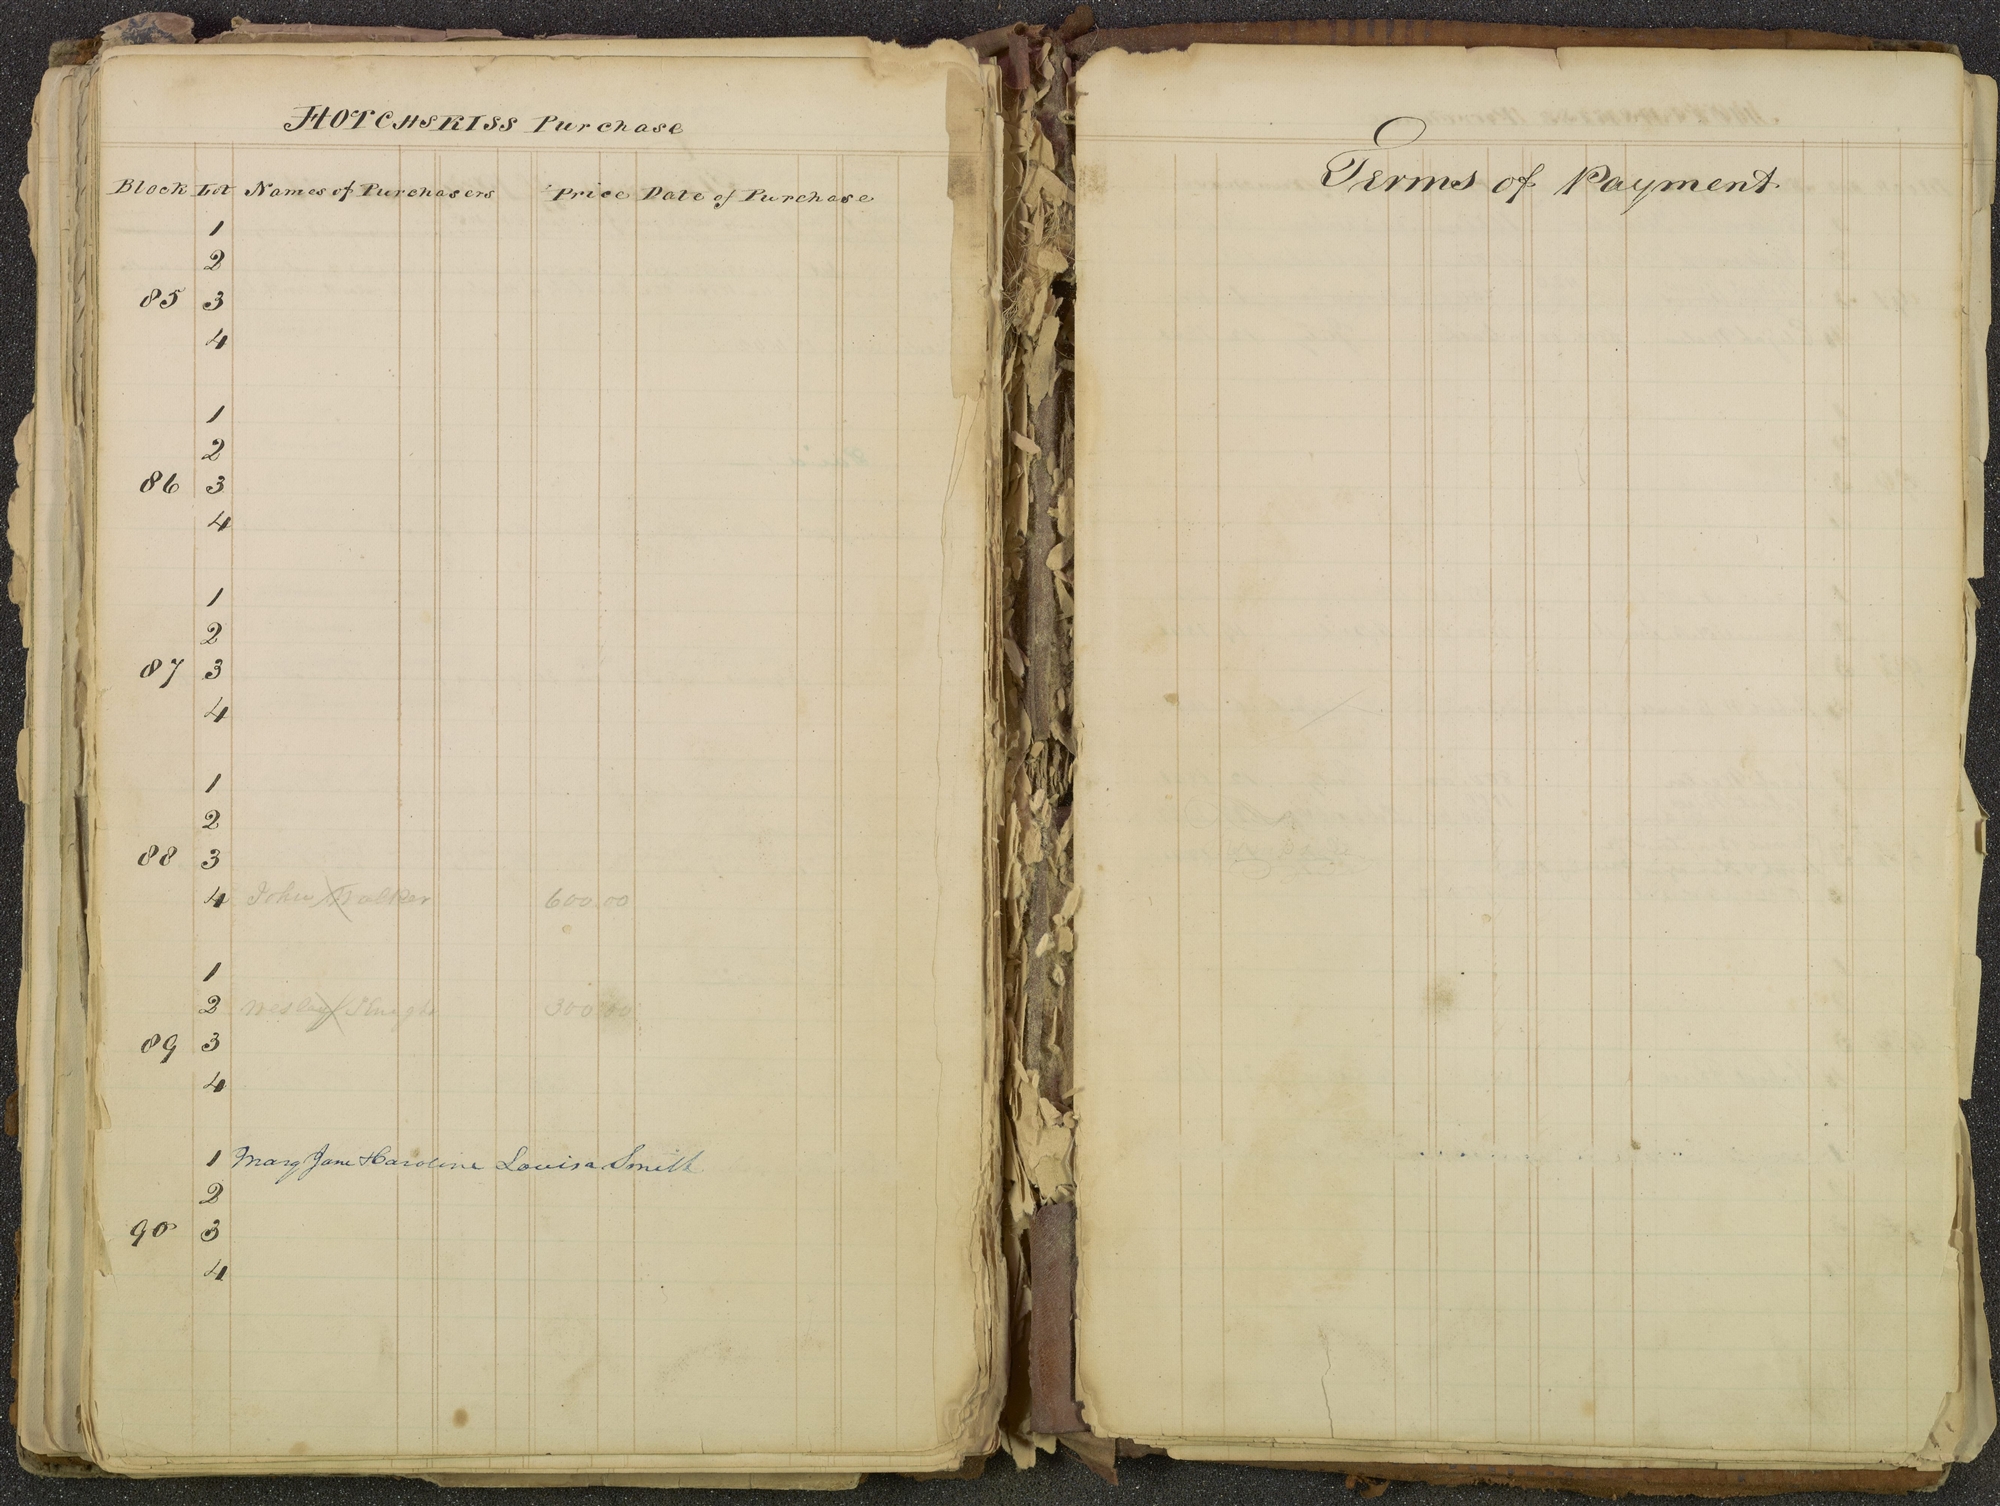 HOTCHSKISS Purchase
Block Lot Names of Purchasers Price Date of Purchase
1
2
85 3
4
1
2
86 3
4
1
2
87 3
4
1
2
88 3
4 John Walker 600.00
1
2 Wesley 300.00
89 3
4
1 Mary Jane & Caroline Louisa Smith
2
90 3
4
Terms of Payment